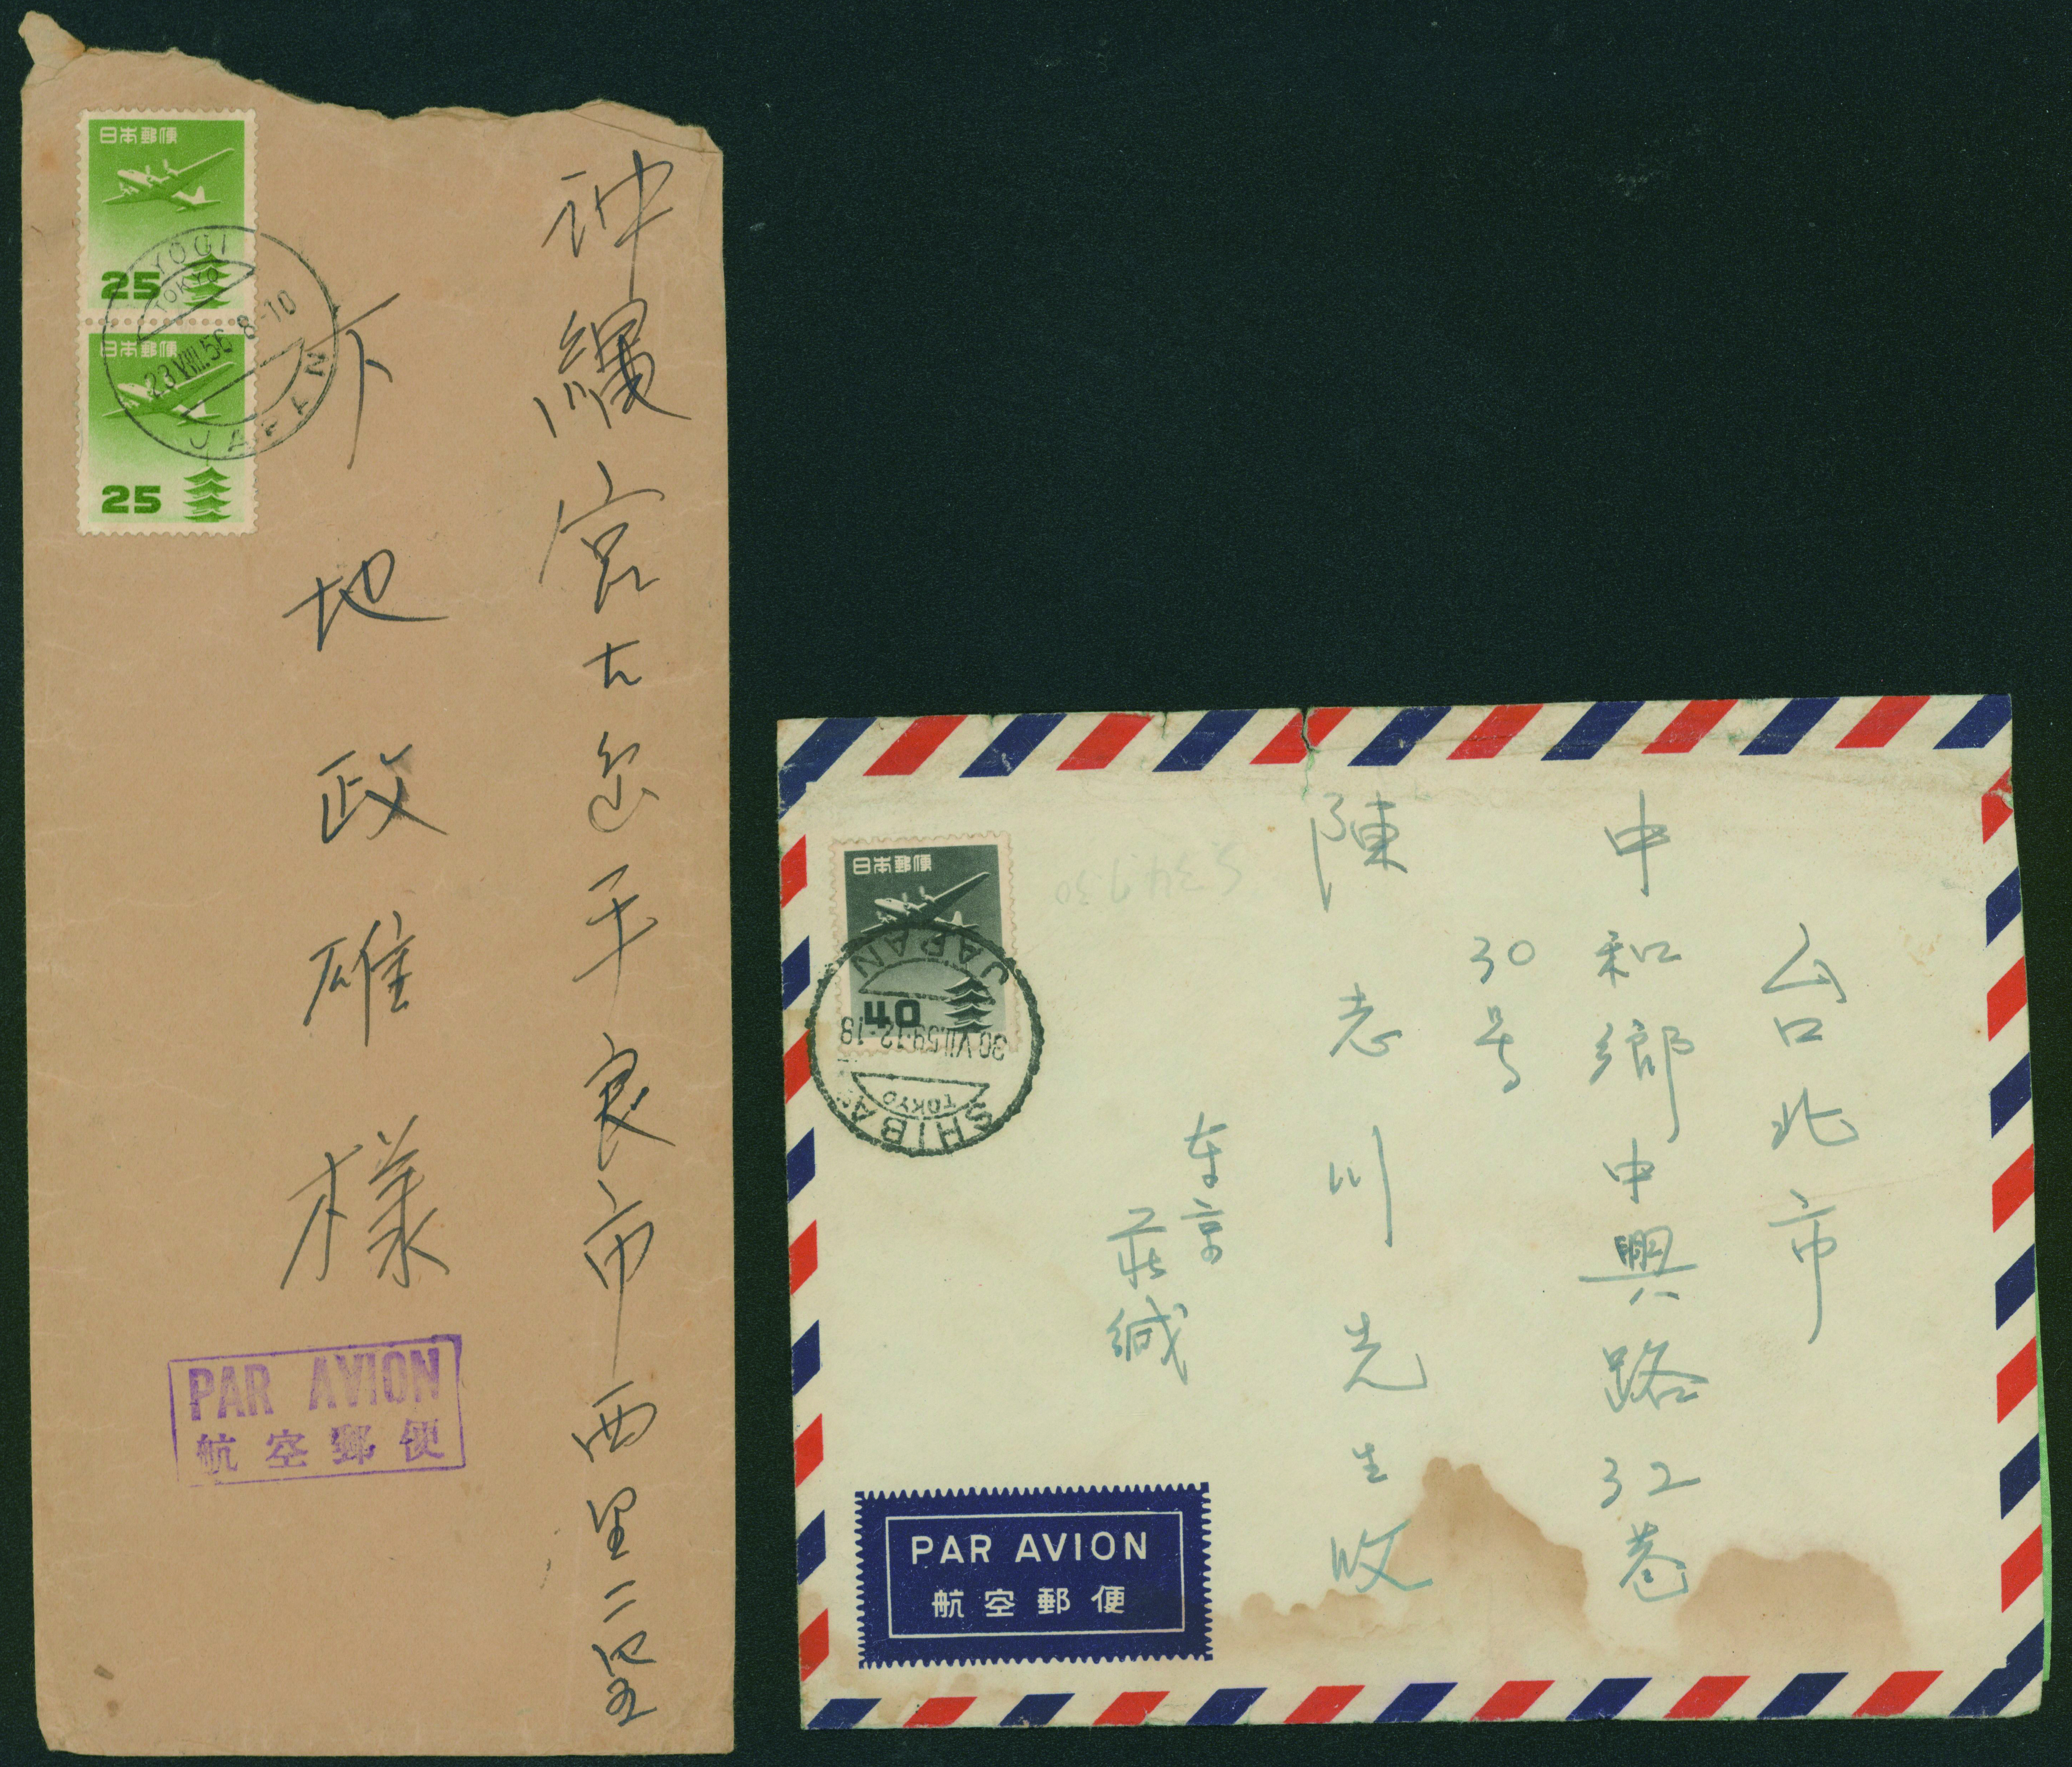 日本郵便
25
日本郵便
25
YOGI
TOKYO
23.VIII.56 8-10
JAPAN
沖縄宮古島平良市西里二四五
下地政雄様
PAR AVION
航空郵便
日本郵便
40
JAPAN
30.VII.59.12-18
TOKYO
SHIBA
台北市
中和鄉中興路32巷
30号
陳志川先生收
东京
莊缄
PAR AVION
航空郵便